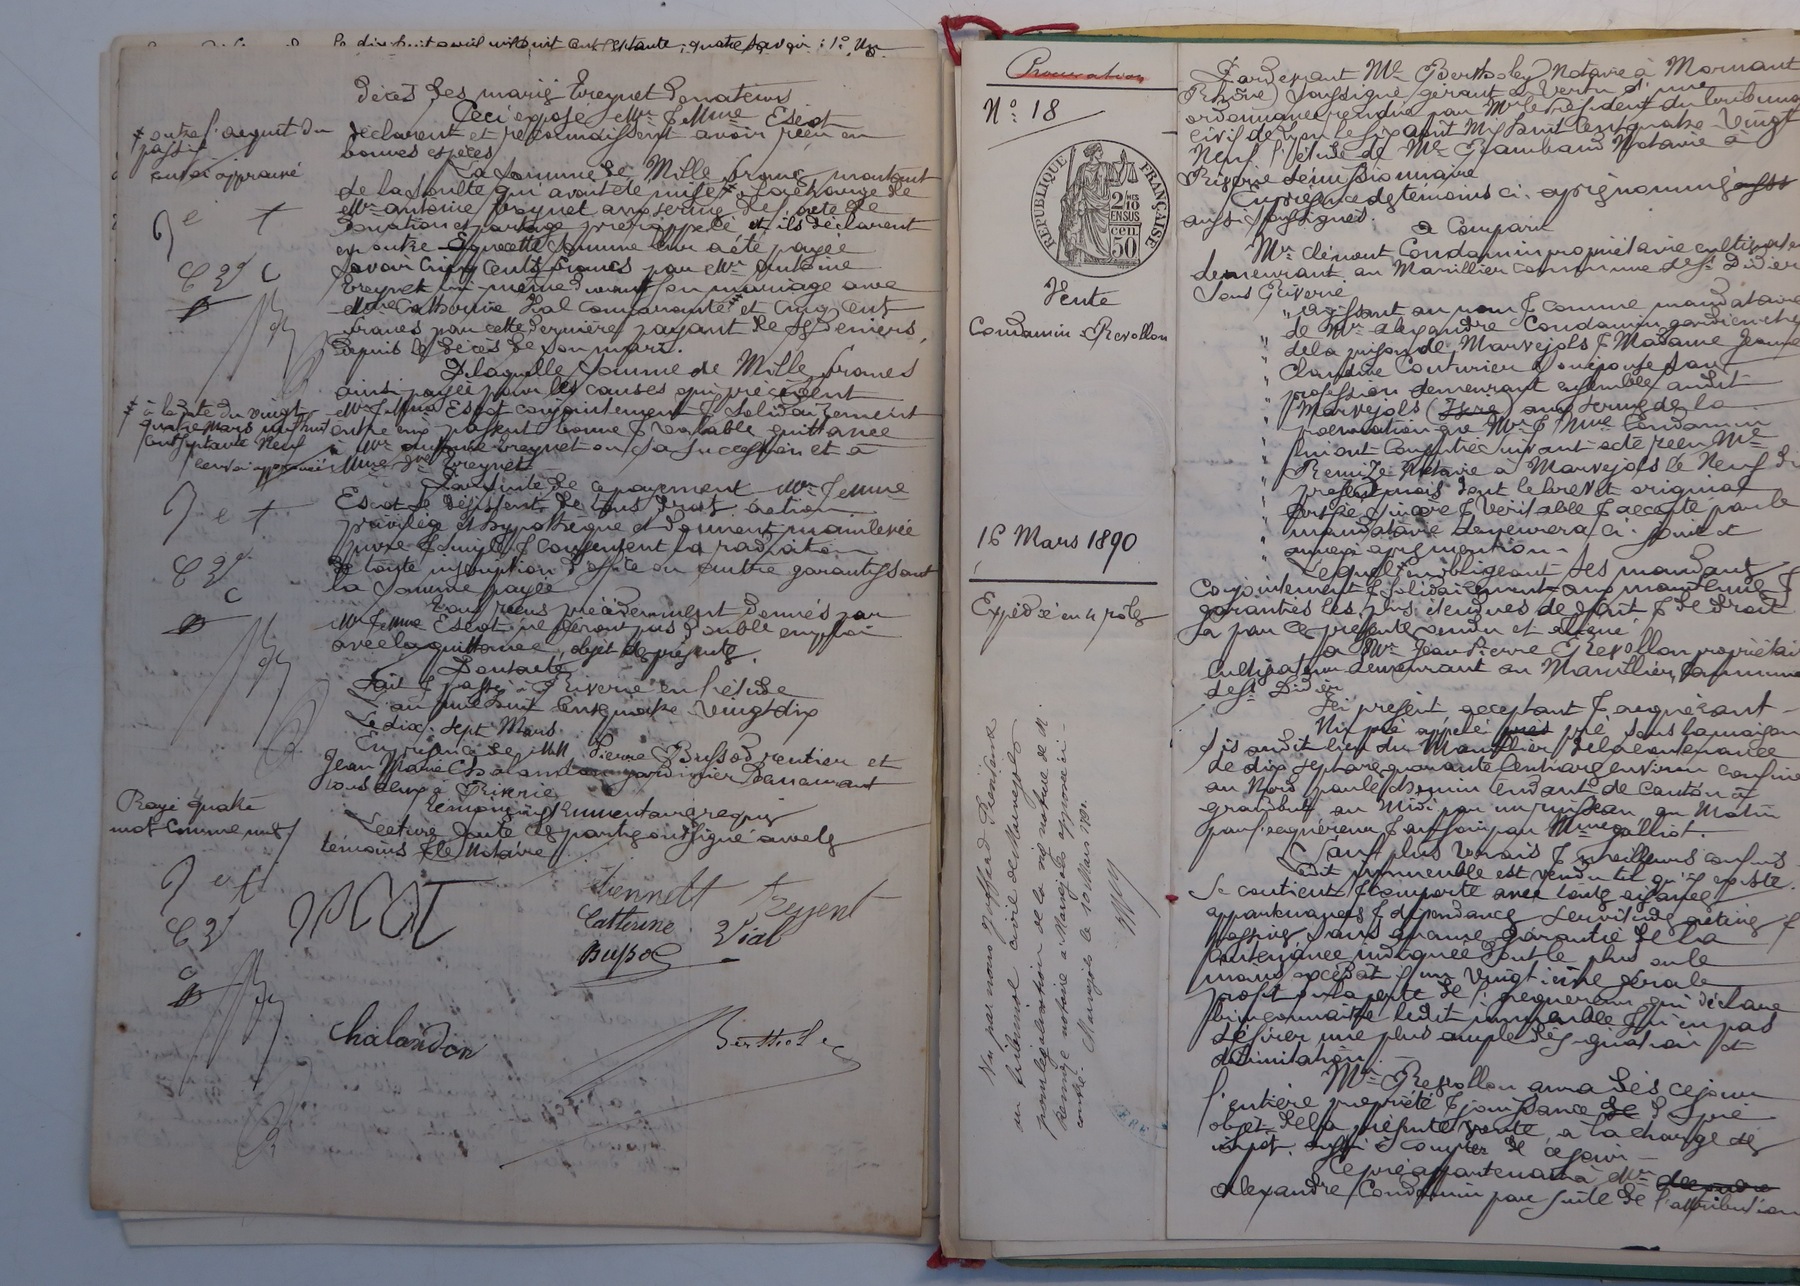 le dix huit avril mil huit cent septante quatre savoir : 1º Un
décès des mariés Treynet donateurs
Ceci exposé Mr & femme Escot
déclarent et reconnaissent avoir reçu en
bonnes espèces
La somme de Mille francs montant
de la soulte qui avait été mise à la charge de
Mr antoine Treynet aux termes de l'acte de
donation et partage prérappelé et ils déclarent
en outre que cette somme leur a été payée
savoir cinq cents francs par Mr antoine
Treynet lui-même durant son mariage avec
Mme Catherine Vial comparante et cinq cent
francs par cette dernière payant de ses deniers,
depuis le décès de son mari.
De laquelle somme de Mille francs
ainsi payée pour les causes qui précèdent
Mr & femme Escot conjointement & solidairement
entre eux passent bonne & valable quittance
à Mr antoine Treynet ou sa succession et à
Mme Vve Treynet
Par suite de ce payement Mr & femme
Escot se désistent de tous droits action
privilège et hypothèque et donnent mainlevée
pure & simple & consentent la radiation
de toute inscription d'office ou autre garantissant
la somme payée
Tous reçus précédemment donnés par
Mr & femme Escot ne feront pas double emploi
avec la quittance, objet des présentes.
Dont acte
Fait & passé à Riverie en l'étude
L'an mil huit cent quatre-vingt dix
Le dix-sept Mars
En présence de MM Pierre Bussod rentier et
Jean Marie Chalandon jardinier demeurant
tous deux à Riverie
témoins instrumentaires requis
Lecture faite les parties ont signé avec les
témoins & le Notaire
outre l'acquit du
passif
envoi approuvé
à la date du vingt
quatre Mars mil huit
cent septante Neuf
renvoi approuvé
Rayé quatre
mot comme nuls
Catherine Vial
Bussod
Chalandon
Berthole
Procuration
Nº 18
RÉPUBLIQUE FRANÇAISE
2/10
EN SUS
50
CEN.
Vente
Condamin à Revollon
16 Mars 1890
Expédié en 4 rôles
Vu par nous
au tribunal civil de Marvejols
pour légalisation de la signature de M.
Remize notaire à Marvejols apposée ci-
contre. Marvejols le 10 Mars 1890.
Pardevant Me Berthole Notaire à Mornant
(Rhône) soussigné gérant en vertu d'une
ordonnance rendue par Mr le Président du tribunal
civil de Lyon le six août Mil huit cent quatre-vingt
Neuf, l'étude de Me Notaire à
Riverie démissionnaire
En présence des témoins ci-après nommés
aussi soussignés.
a Comparu
Mr Clément Condamin propriétaire cultivateur
demeurant au Marillier commune de St Didier
sous Riverie
agissant au nom & comme mandataire
de Mr alexandre Condamin gardien chef
de la prison de Marvejols & Madame Jeanne
Claudine Couturier son épouse sans
profession demeurant ensemble audit
Marvejols (Isère) aux termes de la
procuration que Mr & Mme Condamin
lui ont conférée suivant acte reçu Me
Remize Notaire à Marvejols le Neuf du
présent mois dont le brevet original
certifié sincère & véritable & accepté par le
mandataire demeurera ci-joint et
annexé après mention.
Lequel en obligeant ses mandants
conjointement & solidairement aux
garanties les plus étendues de fait & de droit
a par ces présentes vendu et aliéné
a Mr Jean Pierre Revollon propriétaire
cultivateur demeurant au Marillier, commune
de St Didier
Ici présent acceptant & acquérant
Un pré appelé pré sous la maison
sis audit lieu du Marillier de la contenance
de dix sept ares quarante centiares environ confiné
au Nord par le chemin tendant de Canton à
au Midi par un ruisseau au Matin
par l'acquéreur & au soir par
Sauf plus vrais & meilleurs confins
Ledit immeuble est vendu tel qu'il existe
se contient & comporte avec toutes aisances
appartenances & dépendances servitudes actives &
passives sans aucune garantie de la
contenance indiquée dont le plus ou le
moins excédât-il un vingtième fera le
profit ou la perte de l'acquéreur qui déclare
bien connaître ledit immeuble & n'en pas
désirer une plus ample désignation et
délimitation.
Mr Revollon aura dès ce jour
l'entière propriété & jouissance du pré
objet de la présente vente à la charge des
impôts aussi à compter de ce jour
Ce pré appartenait à Mr
alexandre Condamin par suite de l'attribution